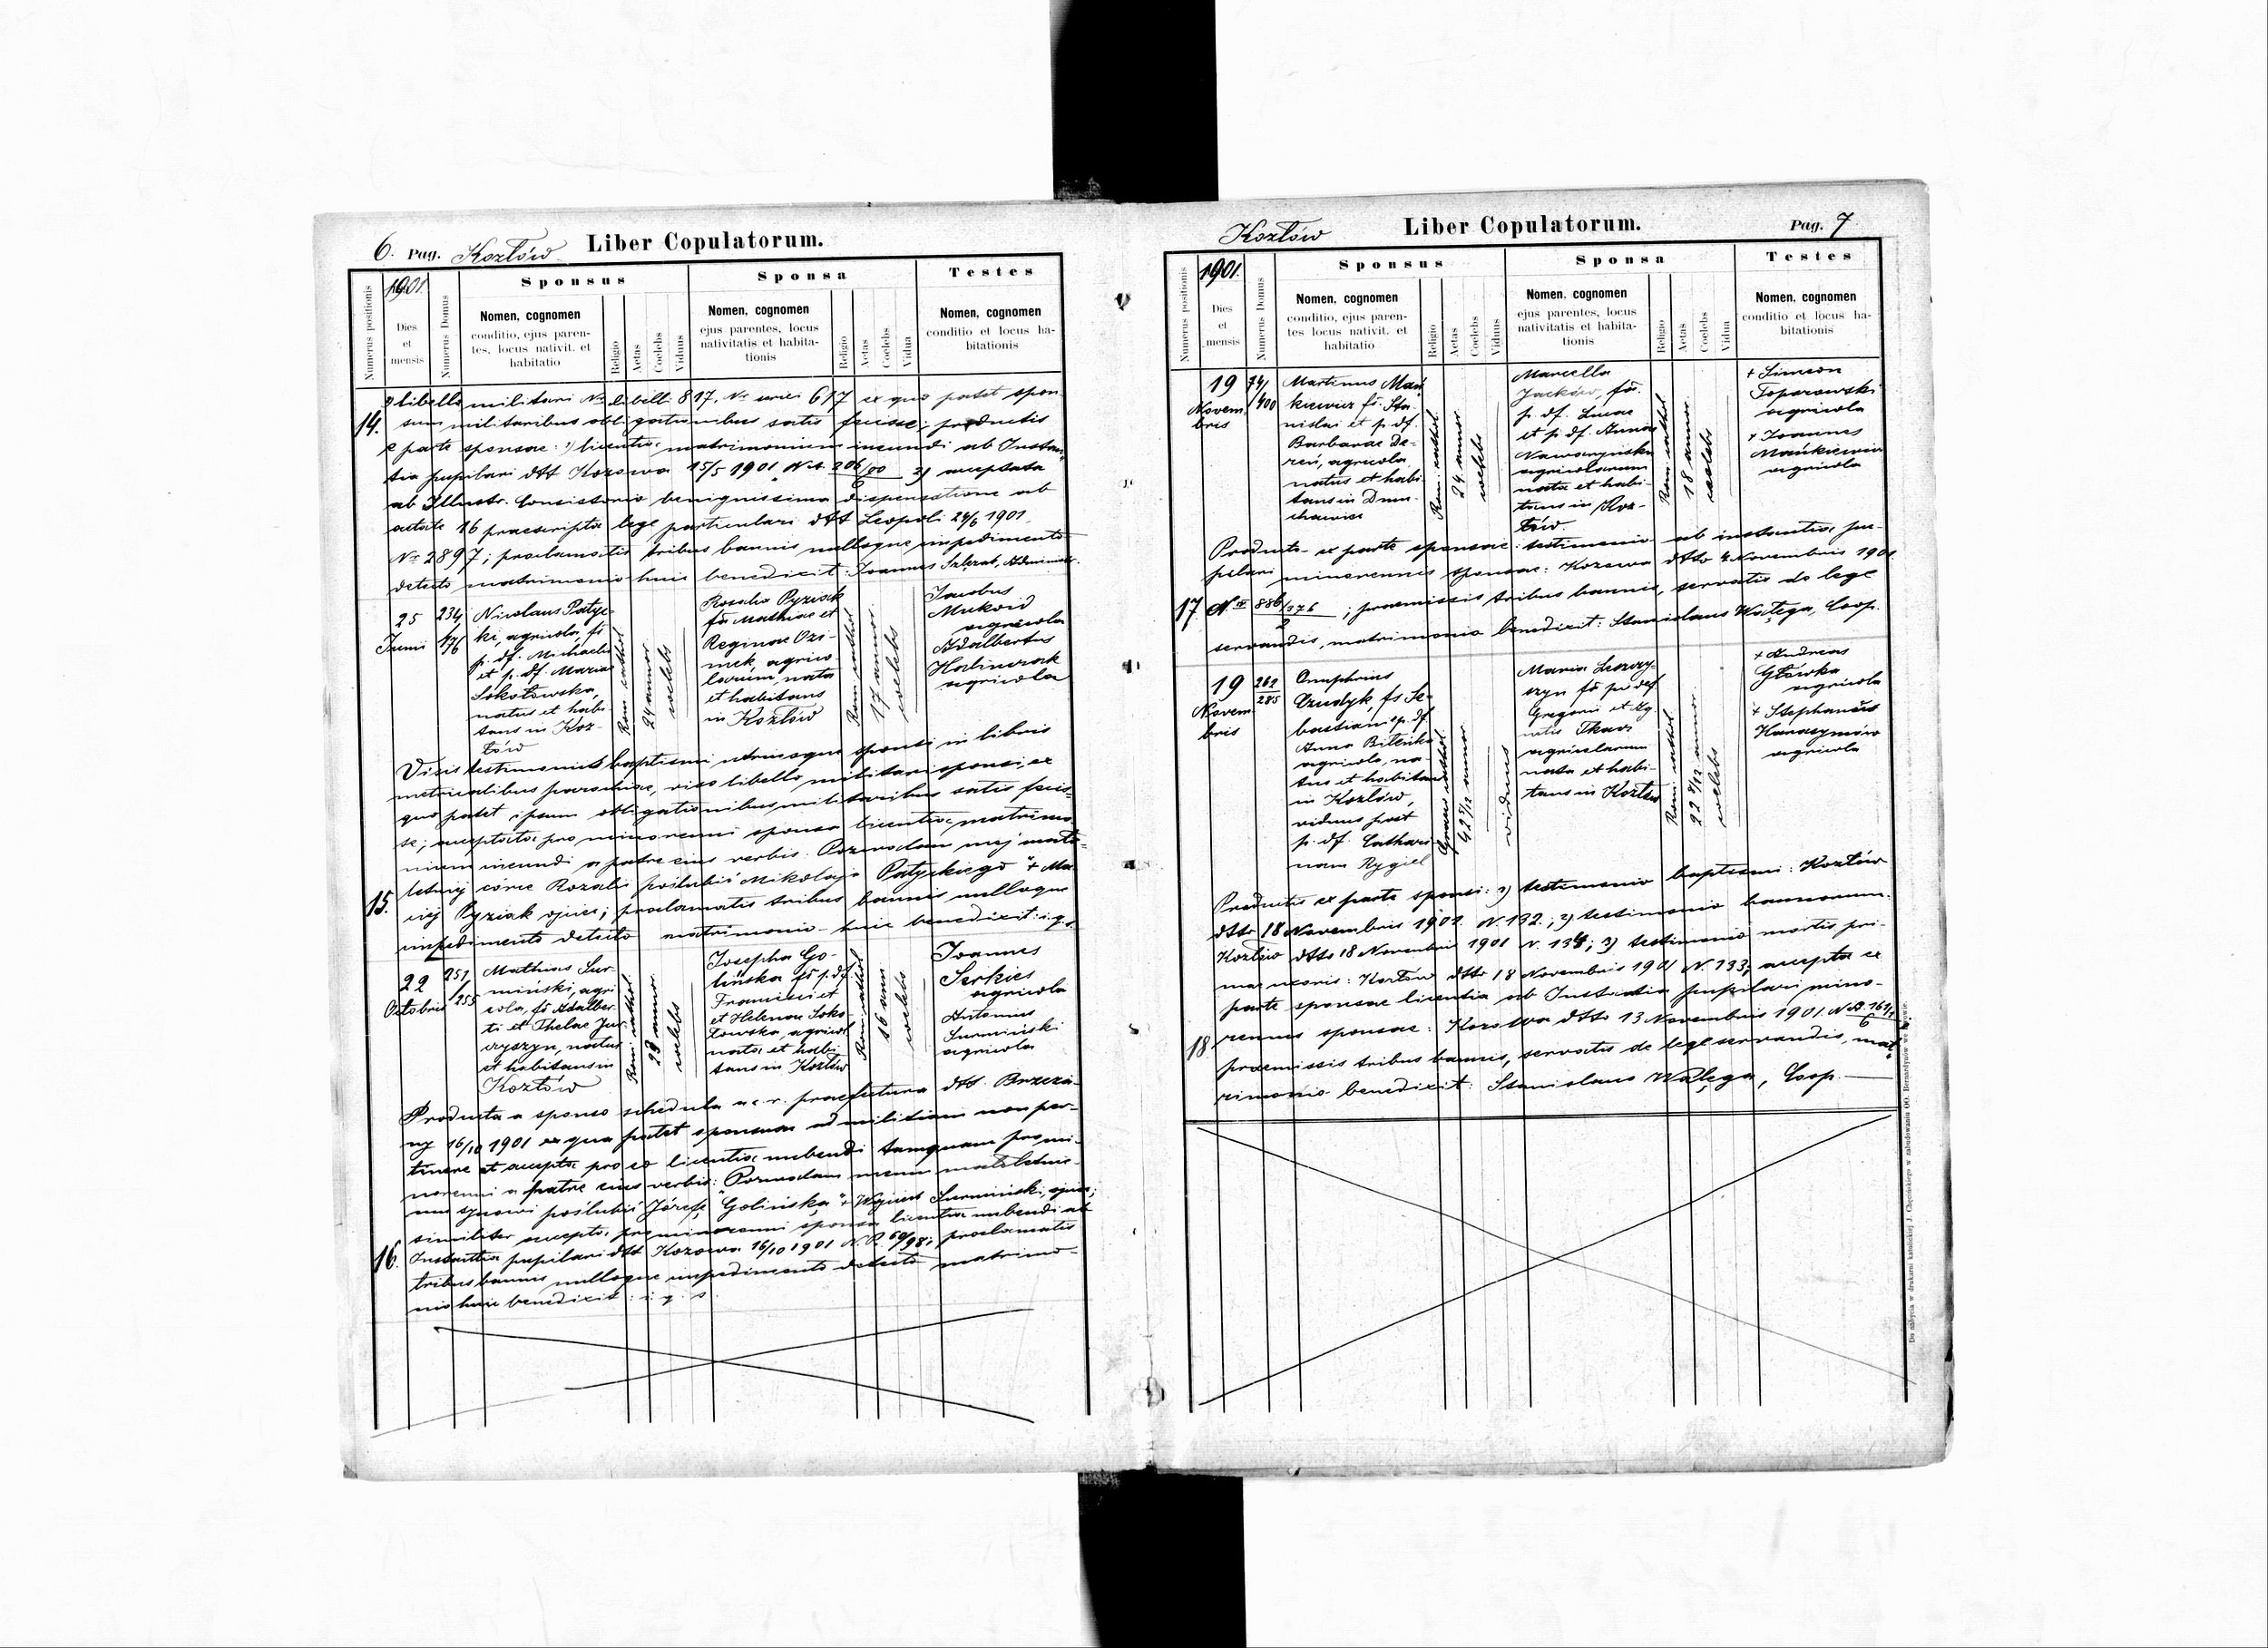 6. Pag. Kozłów Liber Copulatorum.
Numerus positionis
1901.
Dies
et
mensis
Numerus Domus
Sponsus
Nomen, cognomen
conditio, ejus paren-
tes, locus nativit. et
habitatio
Religio
Aetas
Coelebs
Viduus
Sponsa
Nomen, cognomen
ejus parentes, locus
nativitatis et habita-
tionis
Religio
Aetas
Coelebs
Vidua
Testes
Nomen, cognomen
conditio et locus ha-
bitationis
14.
libello militari No libelli 817, No serici 617 ex quo patet spon
sum militaribus obligationibus satis fecisse; productis
e parte sponsae: 1) licentia matrimonium ineundi ab Instan
tia pupilari dtt Kozowa 15/5 1901 206/00 acceptata
ab Illustr. Consistorio benignissima dispensatione ab
aetate 16 praescripta lege particulari dtt Leopoli 24/6 1901
No 2897; proclamatis tribus bannis nulloque impedimento
detecto matrimonio huic benedixit: Joannes
15.
25
Junii
234
176
Nicolaus Patyc-
ki, agricola, fs
p. df. Michaelis
et p. df. Maria
Sokołowska,
natus et habi-
tans in Koz-
łów
Rom. cathol
24 annor
coelebs
Rosalia Pyziak
fa Mathiae et
Reginae Ozi-
mek, agrico-
larum, nata
et habitans
in Kozłów
Rom. cathol
17 annor
coelebs
Jacobus
agricola
Adalbertus
Halinczak
agricola
Visis testimoniis baptismi utriusque sponsi in libris
metricalibus parochiae, viso libello militari sponsi, ex
quo patet ipsum obligationibus militaribus satis fecis-
se; acceptata pro minorenni sponsa licentia matrimo
nium ineundi a patre eius verbis. Pozwalam mej mało-
letniej córce Rozalii poślubić Mikołaja Patyckiego + Ma
ciej Pyziak ojciec; proclamatis tribus bannis nulloque
impedimento detecto matrimonio huic benedixit: i. q. s.
16.
22
Octobris
251
255
Mathias Sur-
miński, agri-
cola, fs Adalber
ti et Theclae Jur
czyszyn, natus
et habitans in
Kozłów
Rom. cathol
coelebs
Josepha Go-
lińska fa p. df.
Francisci et
et Helenae Soko
łowska, agricol
nata et habi
tans in Kozłów
Rom. cathol
16 ann
coelebs
Joannes
Serkies
agricola
Antonius
Surmiński
agricola
Producta a sponso schedula a c. r. praefectura dtt. Brzeża-
ny 16/10 1901 ex qua patet sponsum ad militiam non per-
tinere et accepta pro eo licentia nubendi tamquam pro mi-
norenni a patre eius verbis: Pozwalam memu małoletnie-
mu synowi poślubić Józefę Golińską + Wojciech Surmiński, ojciec;
similiter accepta pro minorenni sponsa licentia nubendi ab
Instantia pupilari dtt Kozowa 16/10 1901 69/98; proclamatis
tribus bannis nulloque impedimento detecto matrimo-
nio huic benedixit: i. q. s.
Kozłów Liber Copulatorum. Pag. 7
Numerus positionis
1901.
Dies
et
mensis
Numerus Domus
Sponsus
Nomen, cognomen
conditio, ejus paren-
tes locus nativit. et
habitatio
Religio
Aetas
Coelebs
Viduus
Sponsa
Nomen, cognomen
ejus parentes, locus
nativitatis et habita-
tionis
Religio
Aetas
Coelebs
Vidua
Testes
Nomen, cognomen
conditio et locus ha-
bitationis
17
19
Novem
bris
400
Martinus Mań
kiewicz fs. Sta
nislai et p. df.
Barbarae De-
reń, agricola
natus et habi
tans in Dmu-
chawiec
Rom. cathol
24. annor
coelebs
Marcella
Jacków, fa.
p. df. Lucae
et p. df. Annae
Nawaryńska
agricolarum
nata et habi-
tans in Koz-
łów.
Rom cathol
18 annor
coelebs
+ Simeon
Toporowski
agricola
+ Joannes
Mańkiewicz
agricola
Producto ex parte sponsae: testimonio ab instantia pu-
pilari minorennis sponsae: Kozowa dtto 4 Novembris 1901
886/276; praemissis tribus bannis, servatis de lege
servandis, matrimonio benedixit: Stanislaus Wałęga, Coop.
18
19
Novem
bris
262
285
Onuphrius
Czudyk, fs Se-
bastiani p. df.
Anna Bilenka
agricola, na-
tus et habitans
in Kozłów,
viduus post
p. df. Cathari
nam Rygiel
Graeco cathol
viduus
Maria Leszczy-
szyn fa p. def
Gregorii et
Tkacz
agricolarum
nata et habi-
tans in Kozłów
Rom. cathol
coelebs
+ Andreas
Główka
agricola
+ Stephanus
Harasymów
agricola
Productis ex parte sponsi: 1) testimonio baptismi: Kozłów
dtto 18 Novembris 1901. N. 132.; 2) testimonio bannorum.
Kozłów dtto 18 Novembris 1901 N. 134; 3) testimonio mortis pri-
mae uxoris: Kozłów dtto 18 Novembris 1901 N. 133; accepta ex
parte sponsae licentia ab Instantia pupilari mino-
rennis sponsae: Kozowa dtto 13 Novembris 1901.
praemissis tribus bannis, servatis de lege servandis, mat
rimonio benedixit: Stanislaus Wałęga, Coop.
Do nabycia w drukarni katolickiej J. Chęcińskiego w zabudowaniu OO. Bernardynów we Lwowie.